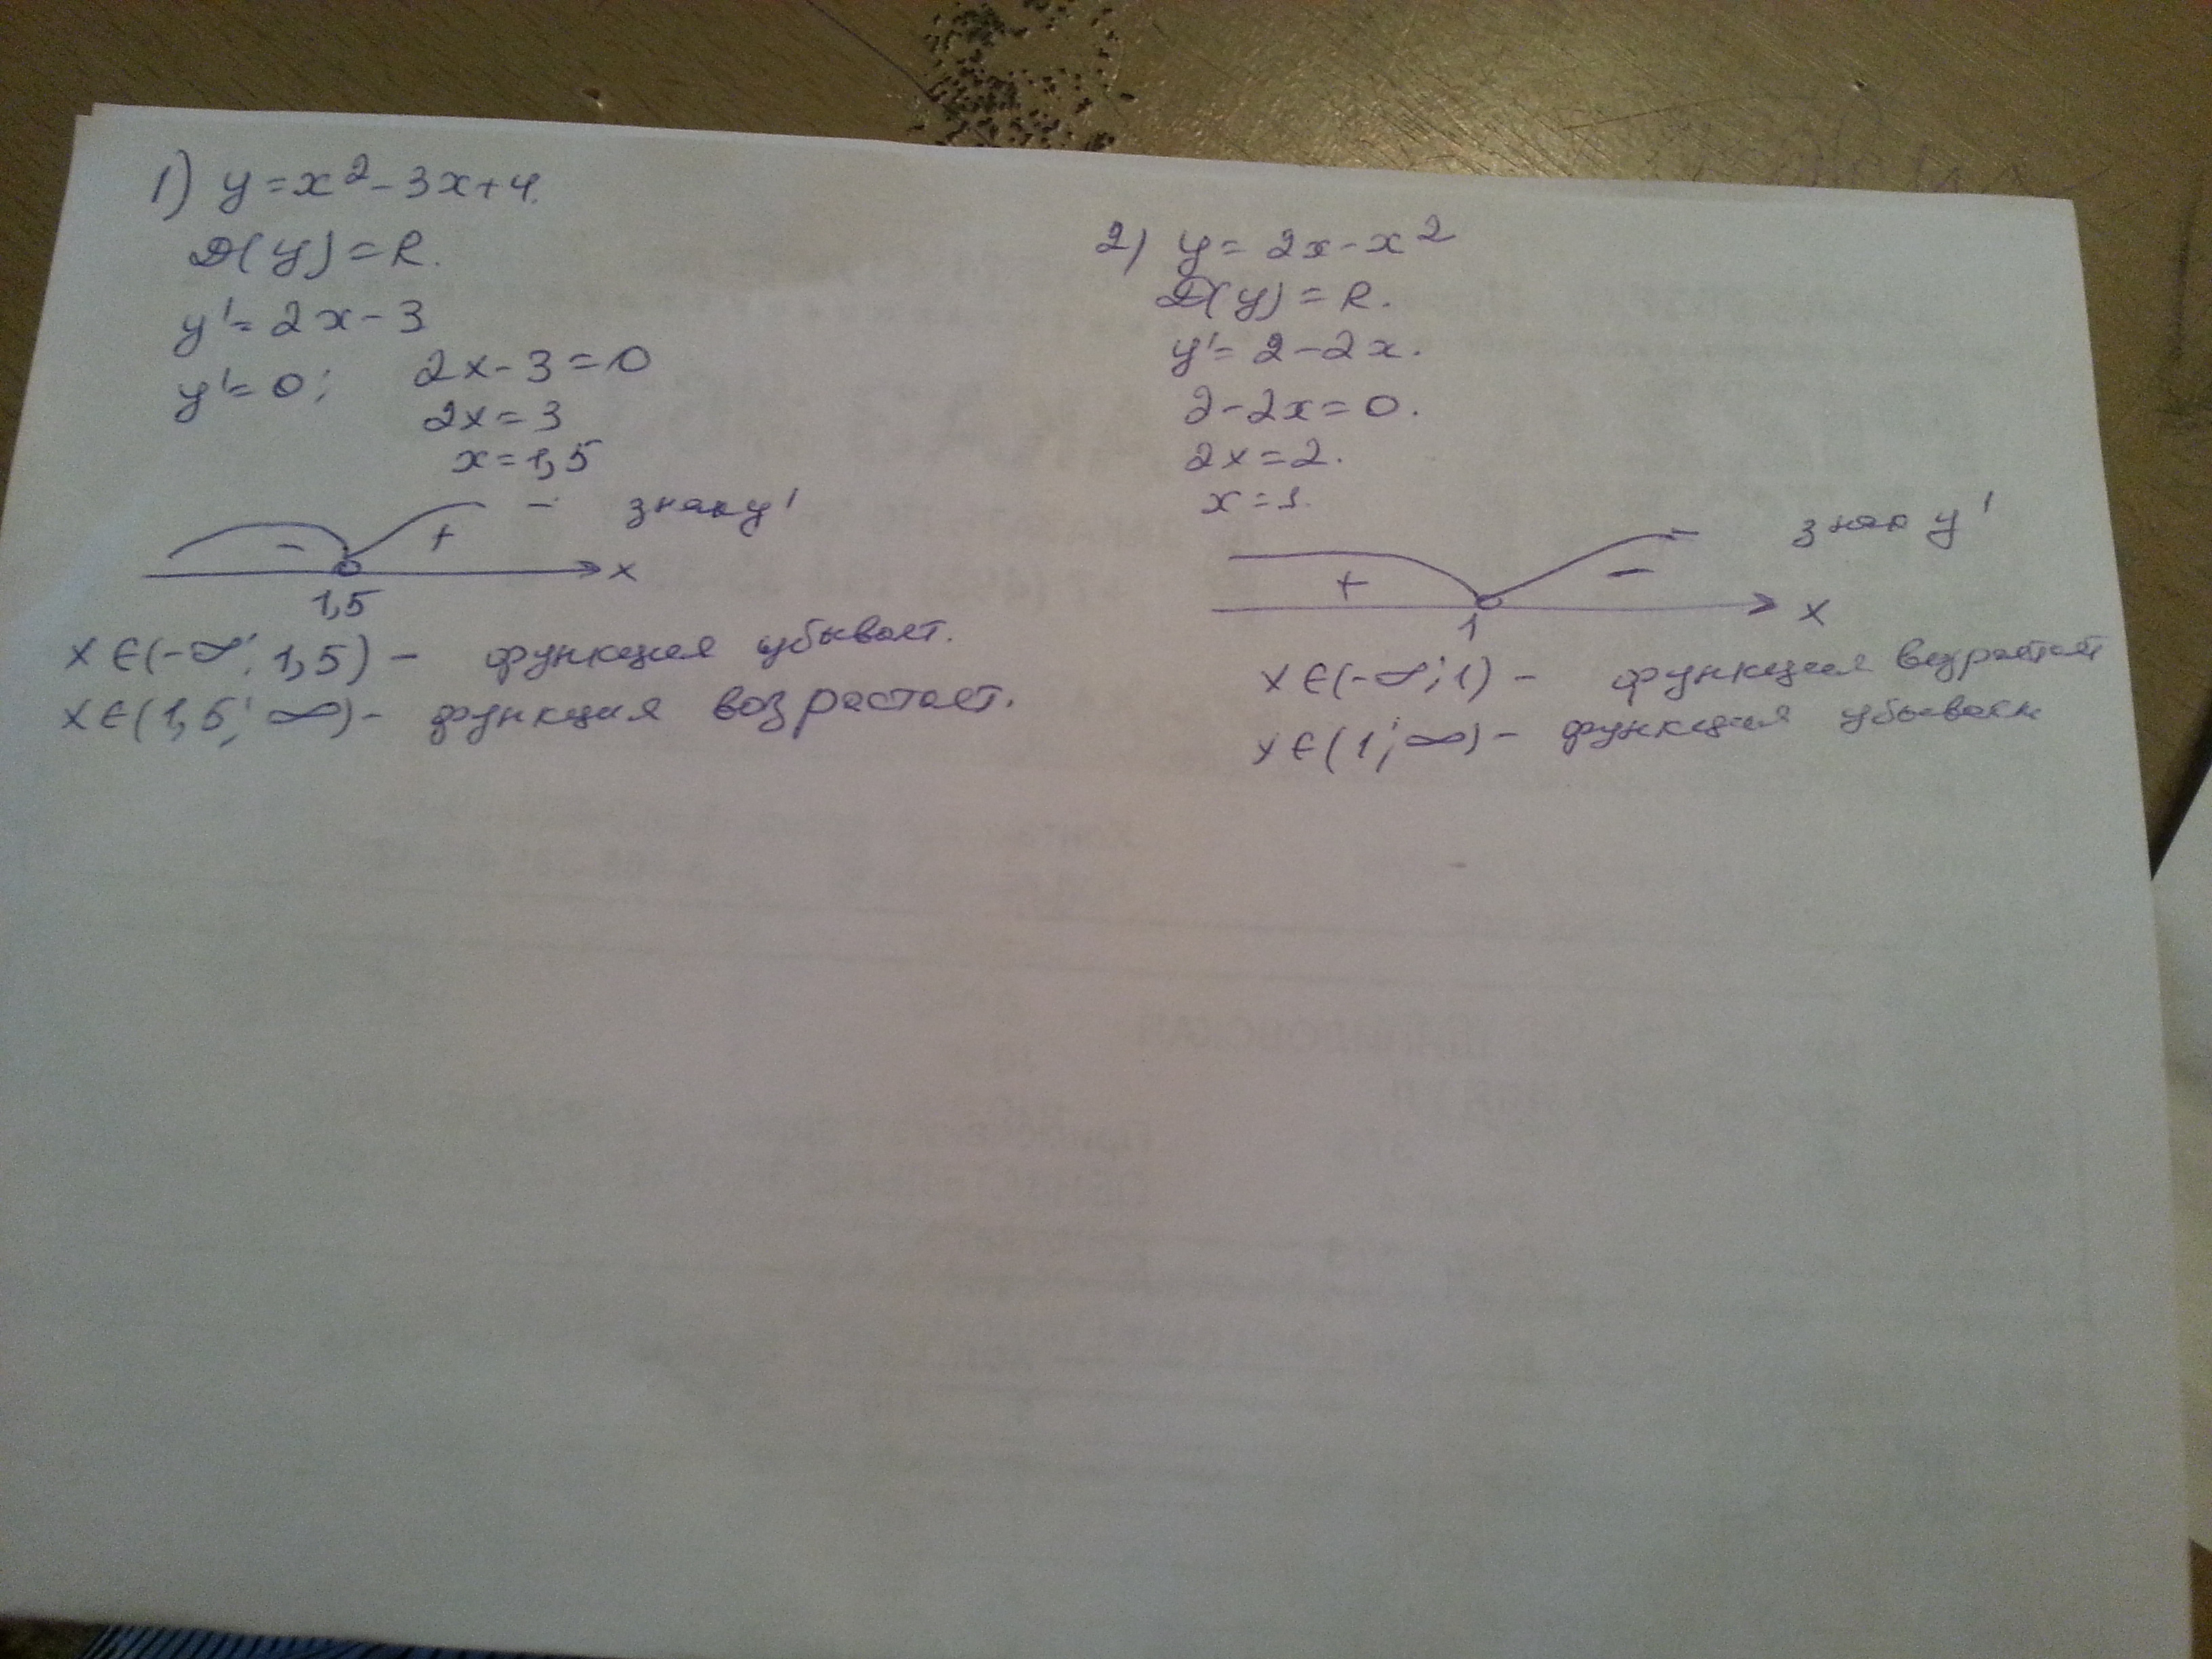 1) y = x² - 3x + 4.
D(y) = R.
y' = 2x - 3
y' = 0; 2x - 3 = 0
2x = 3
x = 1,5
- + знак y'
1,5 x
x ∈ (-∞; 1,5) - функция убывает.
x ∈ (1,5; ∞) - функция возрастает.
2) y = 2x - x²
D(y) = R.
y' = 2 - 2x.
2 - 2x = 0.
2x = 2.
x = 1.
+ - знак y'
1 x
x ∈ (-∞; 1) - функция возрастает
x ∈ (1; ∞) - функция убывает